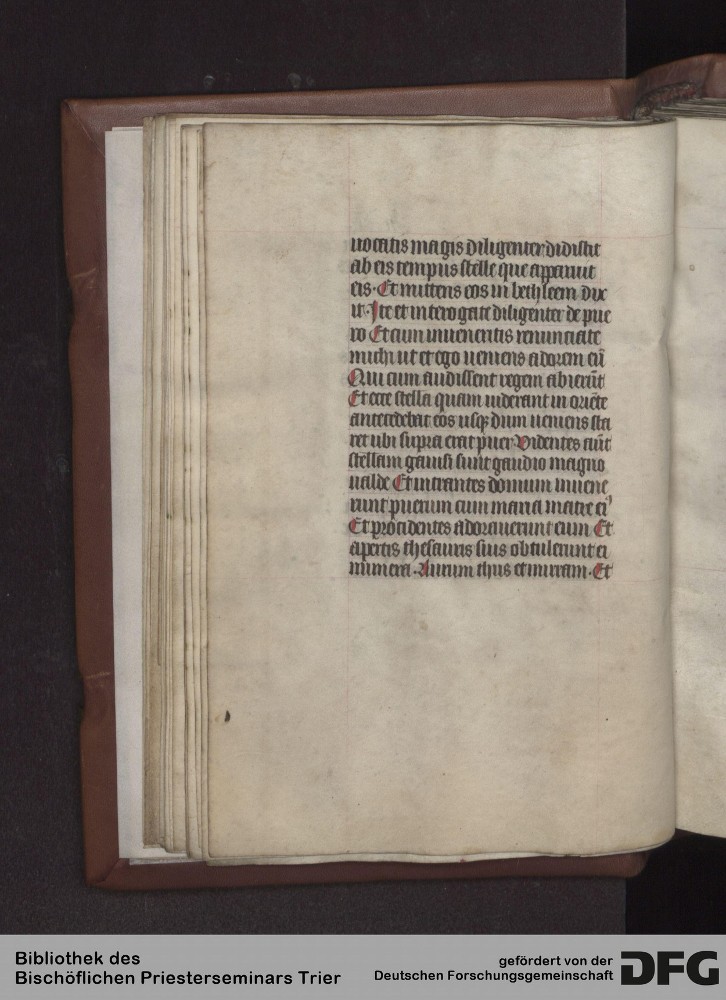 uocatis magis diligenter didiscit
ab eis tempus stelle que apparuit
eis. Et mittens eos in bethleem dix
it. Ite et interogate diligenter de pue
ro Et cum inueneritis renunciate
michi ut et ego ueniens adorem eū
Qui cum audissent regem abierūt
Et ecce stella quam uiderant in oriēte
antecedebat eos usqꝫ dum ueniens sta
ret ubi supra erat puer Videntes aūt
stellam gauisi sunt gaudio magno
ualde Et intrantes domum inuene
runt puerum cum maria matre ei'
Et procidentes adorauerunt eum Et
apertis thesauris suis obtulerunt ei
munera. Aurum thus et mirram. Et
Bibliothek des
Bischöflichen Priesterseminars Trier
gefördert von der
Deutschen Forschungsgemeinschaft
DFG